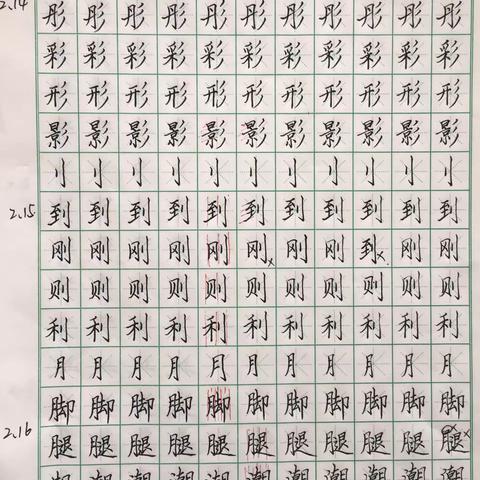 2.14 彤彤彤彤彤彤彤彤彤彤彤
彩彩彩彩彩彩彩彩彩彩彩
形形形形形形形形形形形
影影影影影影影影影影影
刂刂刂刂刂刂刂刂刂刂刂
2.15 到到到到到到到到到到到
刚刚刚刚刚刚x刚刚到x刚刚
则则则则则则则则则则则
利利利利利利利利利利利
月月月月月月月月月月月
脚脚脚脚脚脚脚脚脚脚脚
2.16 腿腿腿腿腿腿腿腿腿腿腿x
潮潮潮潮潮潮潮潮潮潮潮